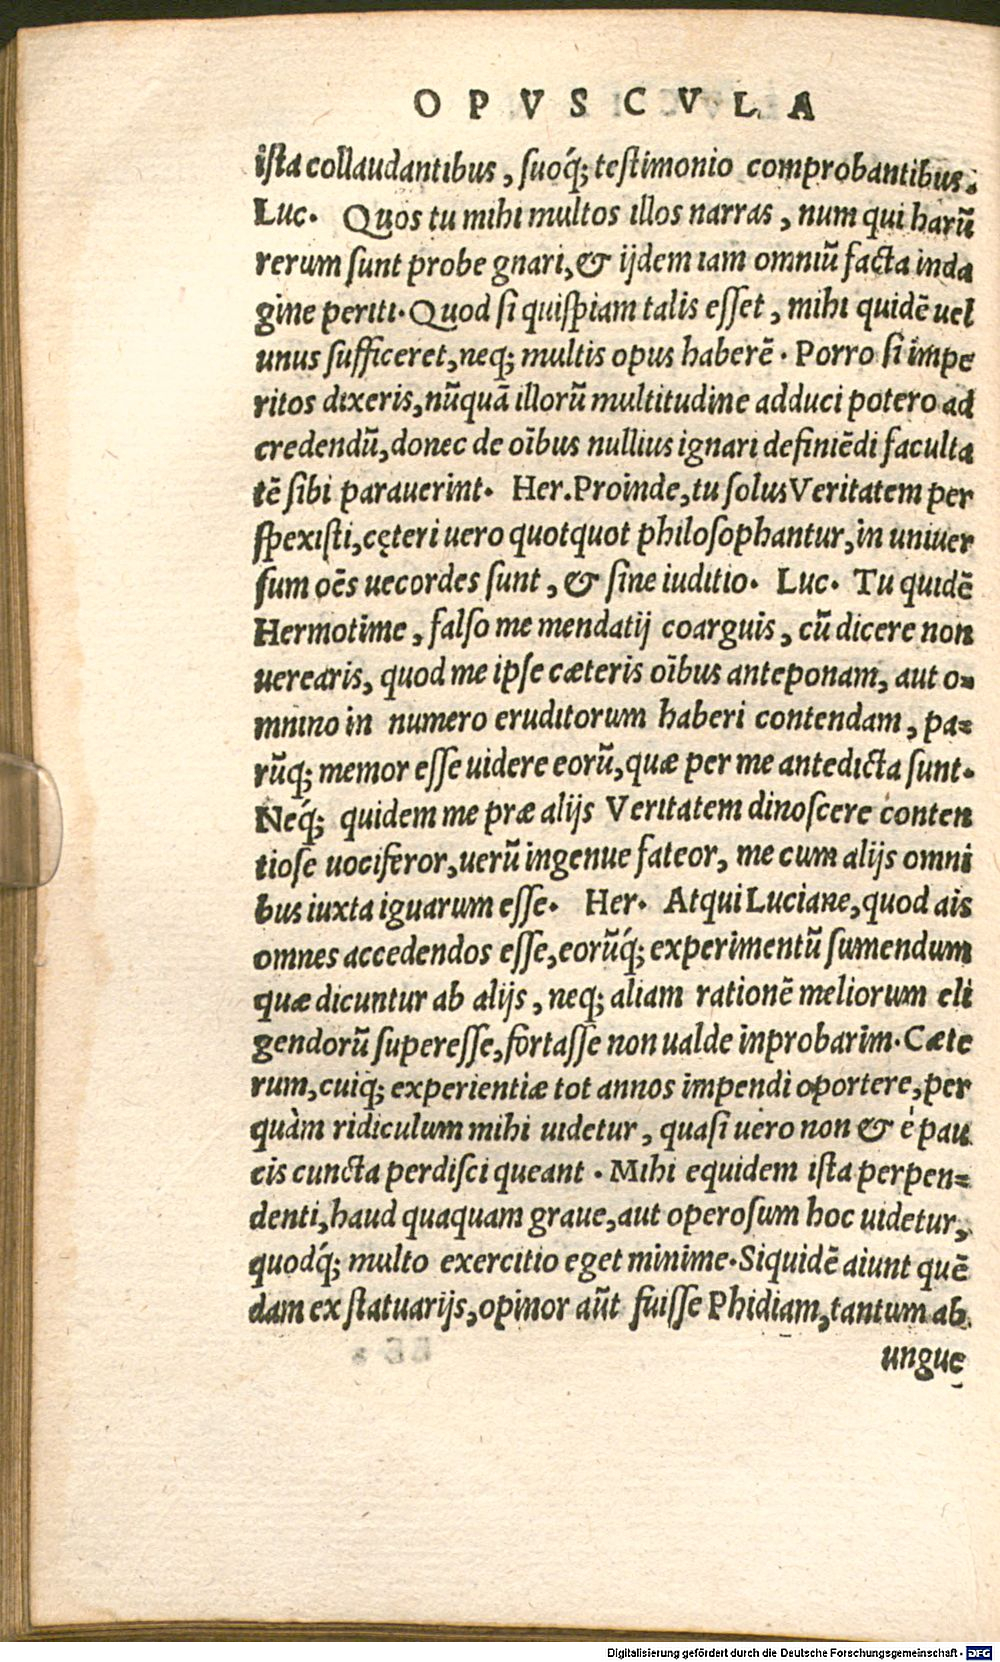 OPVSCVLA
ista collaudantibus, suoq́; testimonio comprobantibus.
Luc. Quos tu mihi multos illos narras, num qui harũ
rerum sunt probe gnari, & ijdem iam omniũ facta inda
gine periti. Quod si quispiam talis esset, mihi quidẽ uel
unus sufficeret, neq; multis opus haberẽ. Porro si impe
ritos dixeris, nũquã illorũ multitudine adduci potero ad
credendũ, donec de oĩbus nullius ignari definiẽdi faculta
tẽ sibi parauerint. Her. Proinde, tu solus Veritatem per
spexisti, cęteri uero quotquot philosophantur, in uniuer
sum oẽs uecordes sunt, & sine iuditio. Luc. Tu quidẽ
Hermotime, falso me mendatij coarguis, cũ dicere non
uerearis, quod me ipse cæteris oĩbus anteponam, aut o=
mnino in numero eruditorum haberi contendam, pa=
rũq; memor esse uidere eorũ, quæ per me antedicta sunt.
Neq́; quidem me præ alijs Veritatem dinoscere conten
tiose uociferor, uerũ ingenue fateor, me cum alijs omni
bus iuxta iguarum esse. Her. Atqui Luciane, quod ais
omnes accedendos esse, eorũq́; experimentũ sumendum
quæ dicuntur ab alijs, neq; aliam rationẽ meliorum eli
gendorũ superesse, fortasse non ualde inprobarim. Cæte
rum, cuiq; experientiæ tot annos impendi oportere, per
quàm ridiculum mihi uidetur, quasi uero non & è pau
cis cuncta perdisci queant. Mihi equidem ista perpen=
denti, haud quaquam graue, aut operosum hoc uidetur,
quodq́; multo exercitio eget minime. Siquidẽ aiunt quẽ
dam ex statuarijs, opinor aũt fuisse Phidiam, tantum ab
ungue
Digitalisierung gefördert durch die Deutsche Forschungsgemeinschaft - DFG